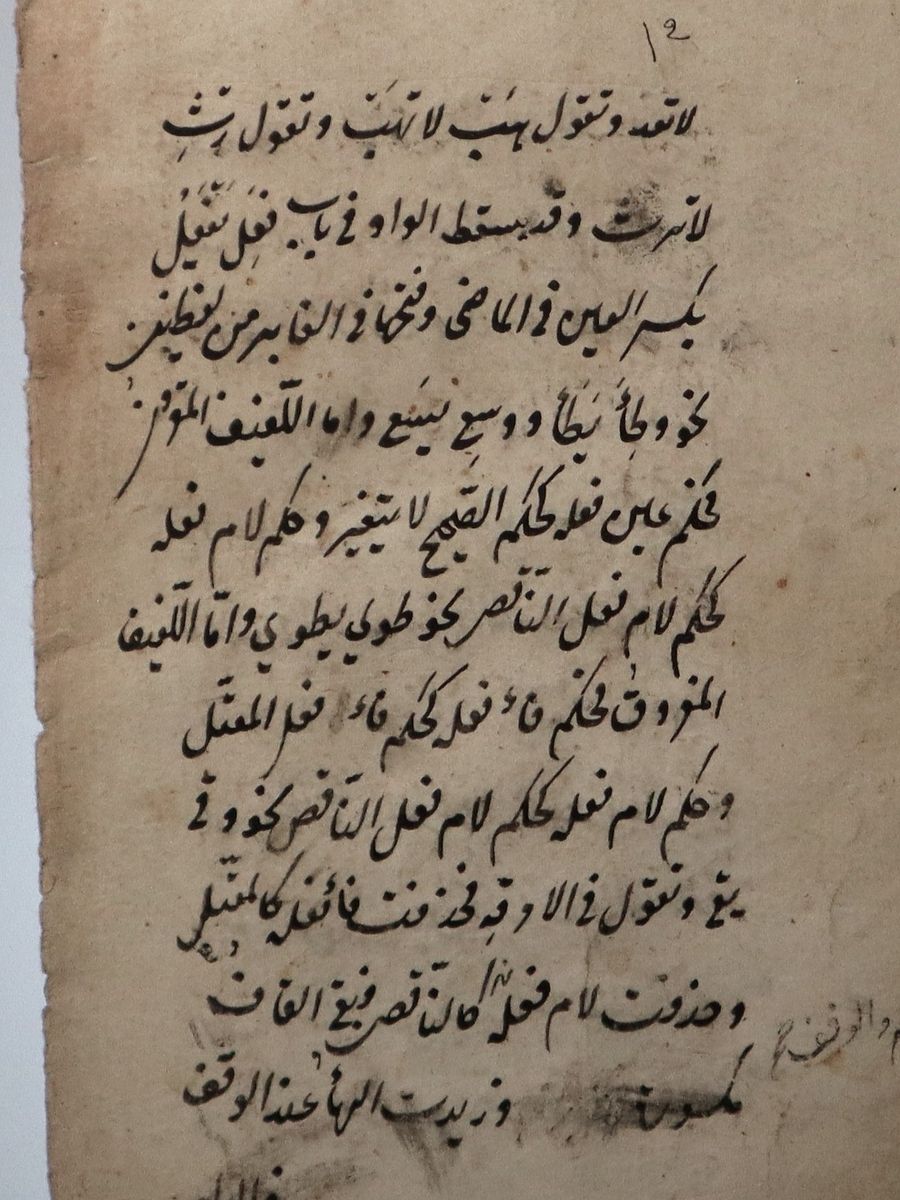 ١٢
لا تعد وتقول هَبْ لا تهَبْ وتقول رِثْ
لا ترث وقد يسقط الواو فى باب فعِلَ يَفْعَلُ
بكسر العين فى الماضى وفتحها فى الغابر من لفظين
نحو وطِأَ يَطَأُ ووسِع يسَع واما اللّفيف المقرون
فحكم عين فعله كحكم الصّحيح لا يتغير وحكم لام فعله
كحكم لام فعل النّاقص نحو طوي يطوي وامّا اللّفيف
المفروق فحكم فاء فعله كحكم فاء فعل المعتّل
وحكم لام فعله كحكم لام فعل النّاقص نحو وقى
يقى وتقول فى الامر قِه فحذفت فاء فعله كالمعتّل
وحذفت لام فعله كالنّاقص وبقى القاف
مكسورة وزيدت الهاء عند الوقف